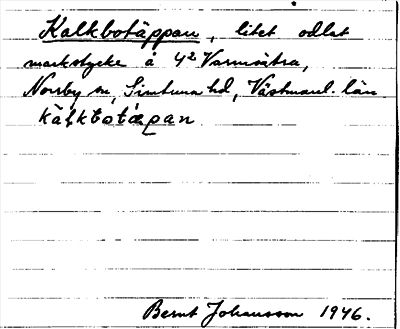 Kalkbotäppan, litet odlat
markstycke å 4² Varmsätra,
Norrby sn, Simtuna hd, Västmanl. län
kalkbotäpan.
Bernt Johansson 1946.